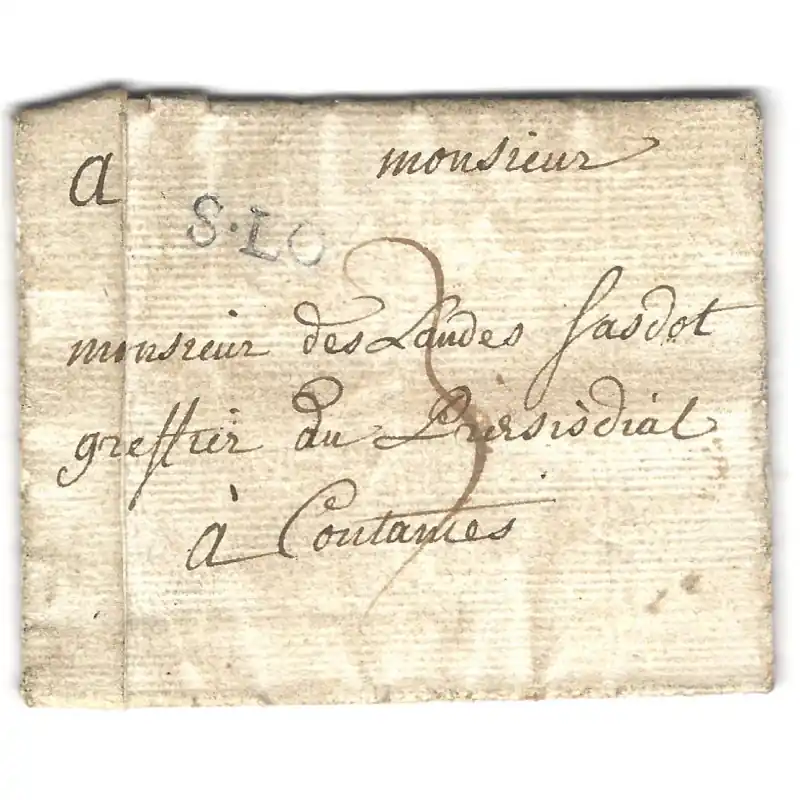 a monsieur
S·LO
3
monsieur des Landes Gasdot
greffier du Presisdial
à Coutances